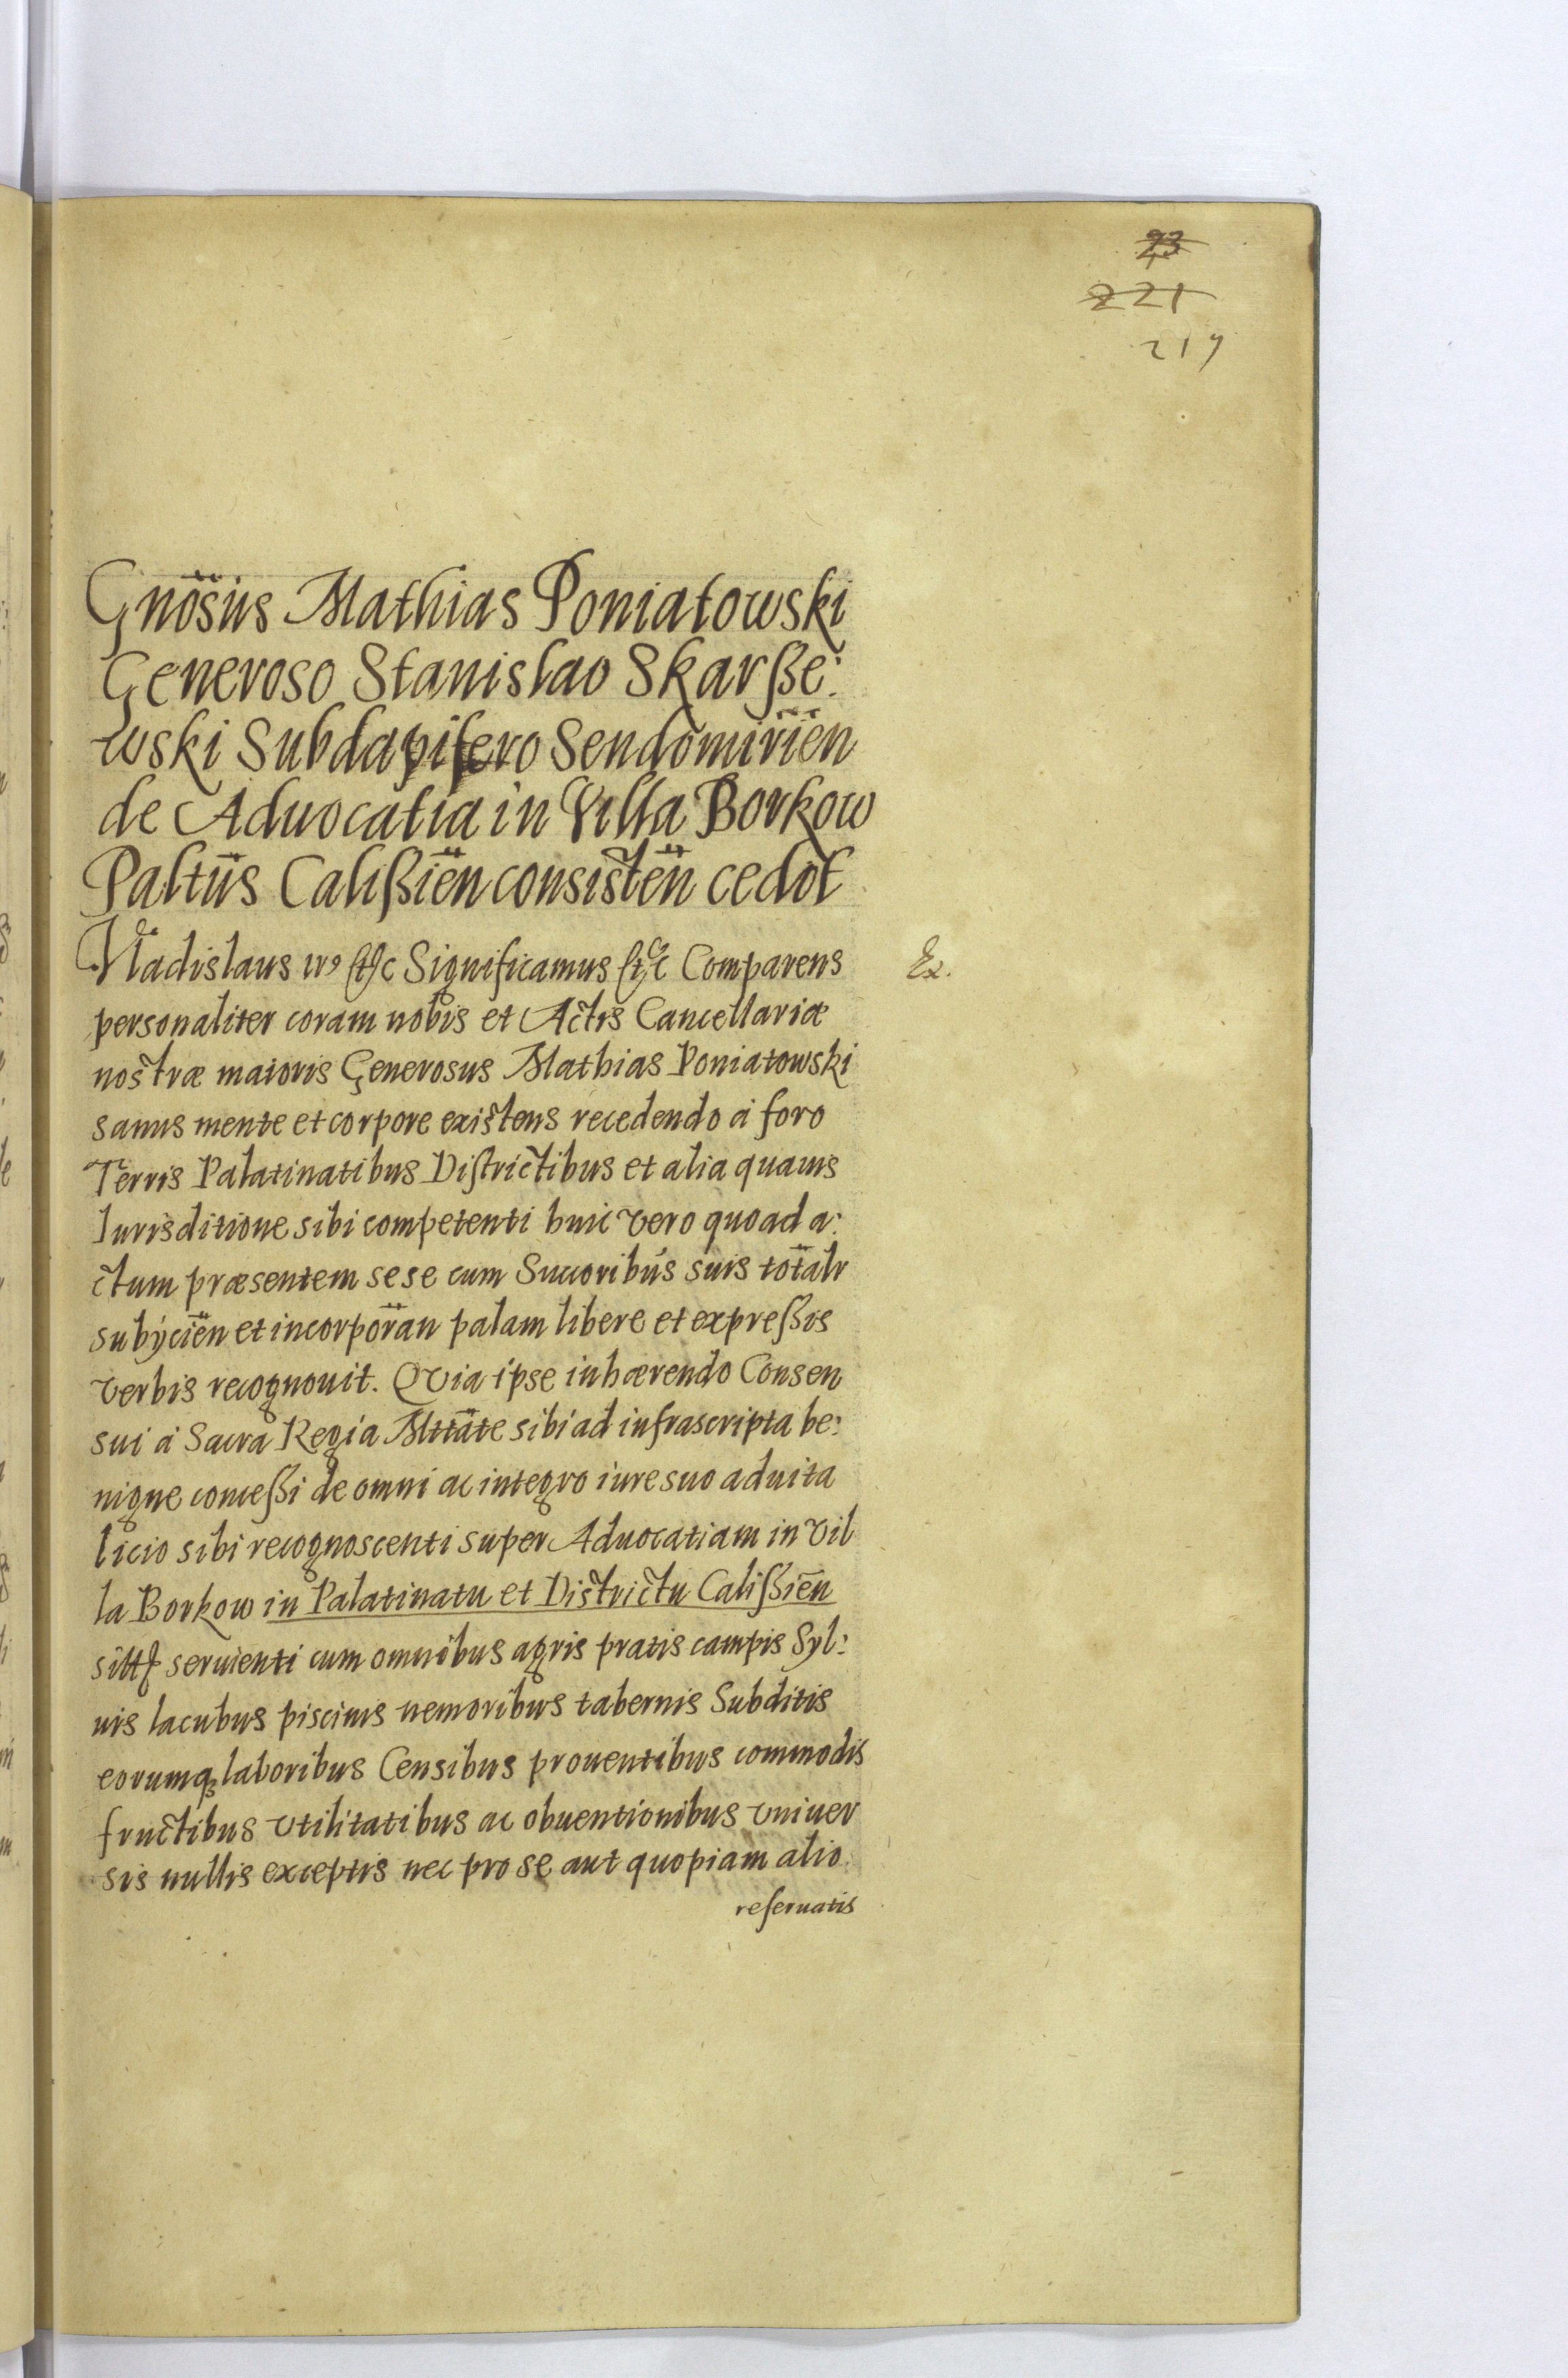 23
221
219
Gnosus Mathias Poniatowski
Generoso Stanislao Skarsze:
wski Subdapifero Sendomirien
de Aduocatia in Villa Borkow
Paltus Calißien consisten cedot
Vladislaus IVs etc Significamus etc Comparens
Ex.
personaliter coram nobis et Actis Cancellariæ
nostræ maioris Generosus Mathias Poniatowski
sanus mente et corpore existens recedendo á foro
Terris Palatinatibus Districtibus et alia quauis
Iurisditione sibi competenti huic vero quoad a:
ctum præsentem sese cum Succoribus suis totalr
subÿcien et incorporan palam libere et expreßis
verbis recognouit. Qvia ipse inhærendo Consen
sui á Sacra Regia Mttate sibi ad infrascripta be:
nigne conceßi de omni ac integro iure suo aduita
licio sibi recognoscenti super Aduocatiam in vil
la Borkow in Palatinatu et Districtu Calißien
seruienti cum omnibus agris pratis campis Syl:
uis lacubus piscinis nemoribus tabernis Subditis
eorumq laboribus Censibus prouentibus commodis
fructibus vtilitatibus ac obuentionibus vniuer
sis nullis exceptis nec pro se aut quopiam alio
reseruatis